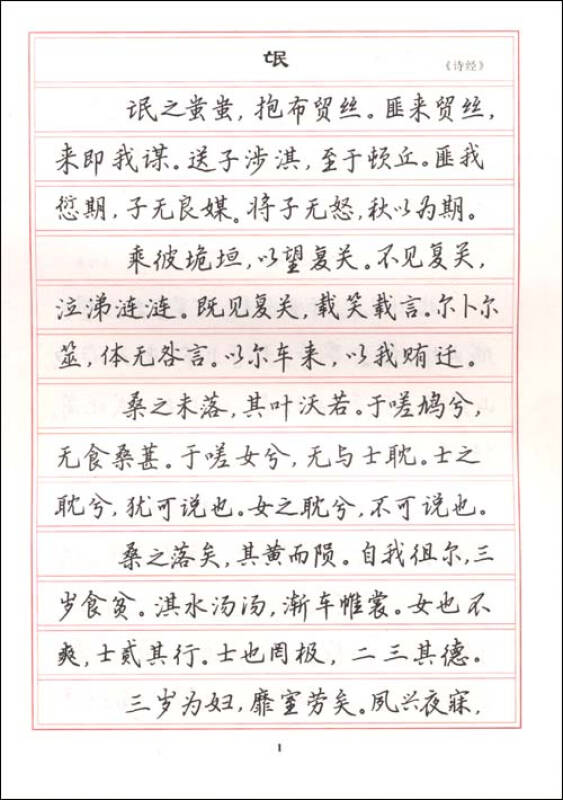 氓
《诗经》
氓之蚩蚩，抱布贸丝。匪来贸丝，
来即我谋。送子涉淇，至于顿丘。匪我
愆期，子无良媒。将子无怒，秋以为期。
乘彼垝垣，以望复关。不见复关，
泣涕涟涟。既见复关，载笑载言。尔卜尔
筮，体无咎言。以尔车来，以我贿迁。
桑之未落，其叶沃若。于嗟鸠兮，
无食桑葚。于嗟女兮，无与士耽。士之
耽兮，犹可说也。女之耽兮，不可说也。
桑之落矣，其黄而陨。自我徂尔，三
岁食贫。淇水汤汤，渐车帷裳。女也不
爽，士贰其行。士也罔极，二三其德。
三岁为妇，靡室劳矣。夙兴夜寐，
1